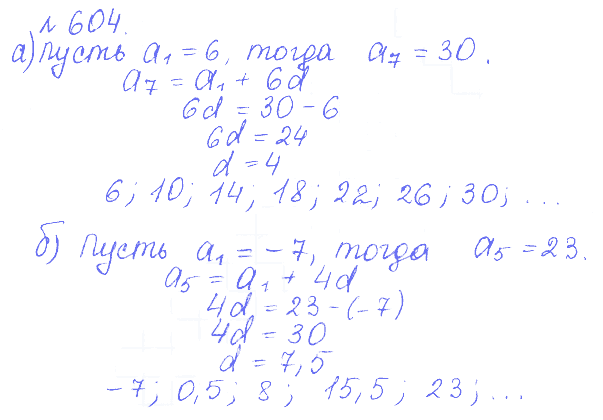 № 604.
а) Пусть a₁ = 6, тогда a₇ = 30.
a₇ = a₁ + 6d
6d = 30 - 6
6d = 24
d = 4
6; 10; 14; 18; 22; 26; 30; ...
б) Пусть a₁ = -7, тогда a₅ = 23.
a₅ = a₁ + 4d
4d = 23 - (-7)
4d = 30
d = 7,5
-7; 0,5; 8; 15,5; 23; ...